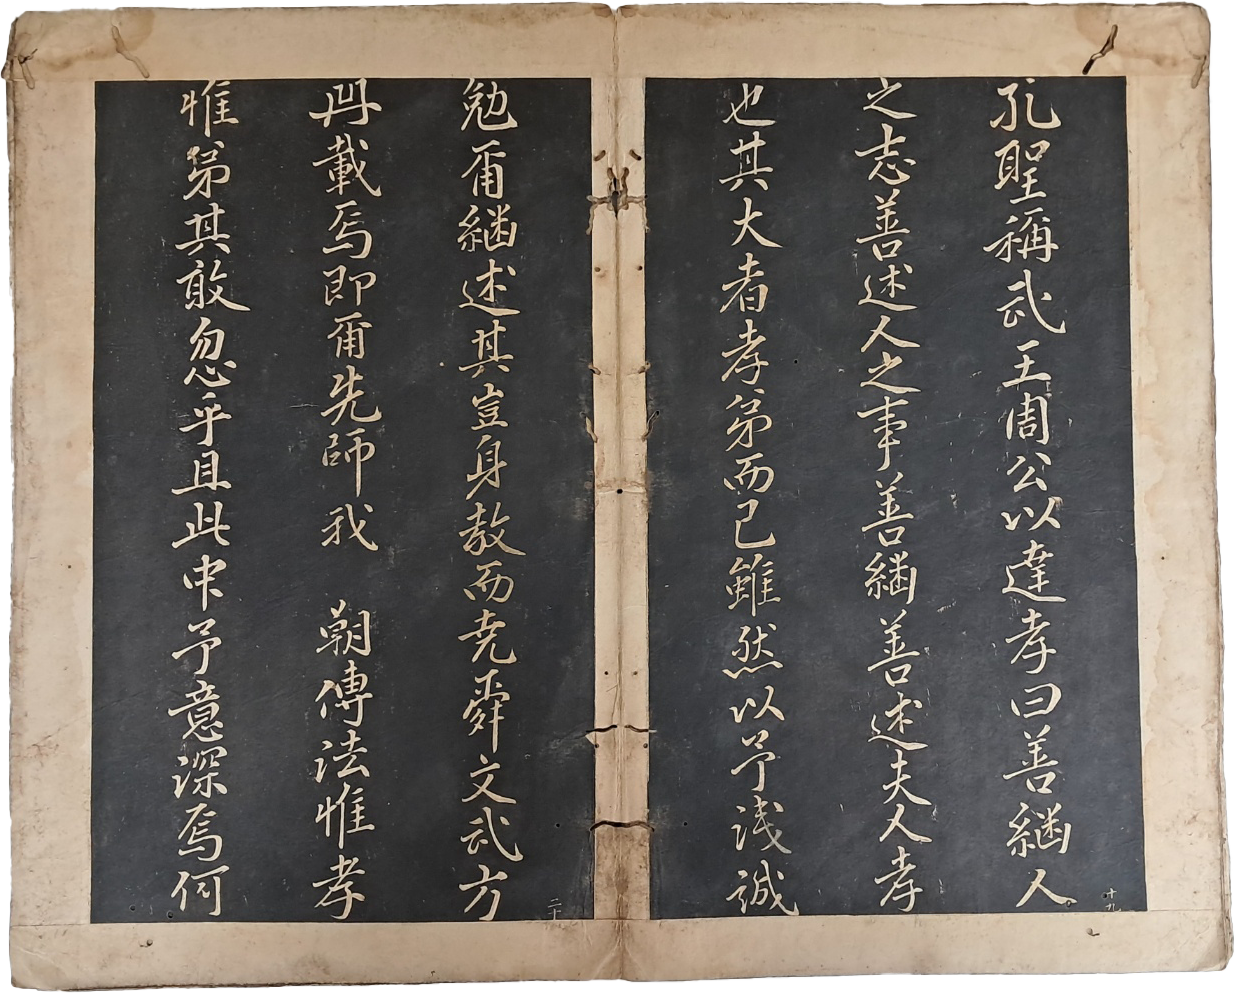 孔聖稱武王周公以達孝曰善繼人
之志善述人之事善繼善述夫人孝
也其大者孝弟而已雖然以予淺誠
十九
勉爾繼述其豈身教而堯舜文武方
冊載焉即爾先師我 朝傳法惟孝
惟弟其敢忽乎且此中予意深焉何
二十